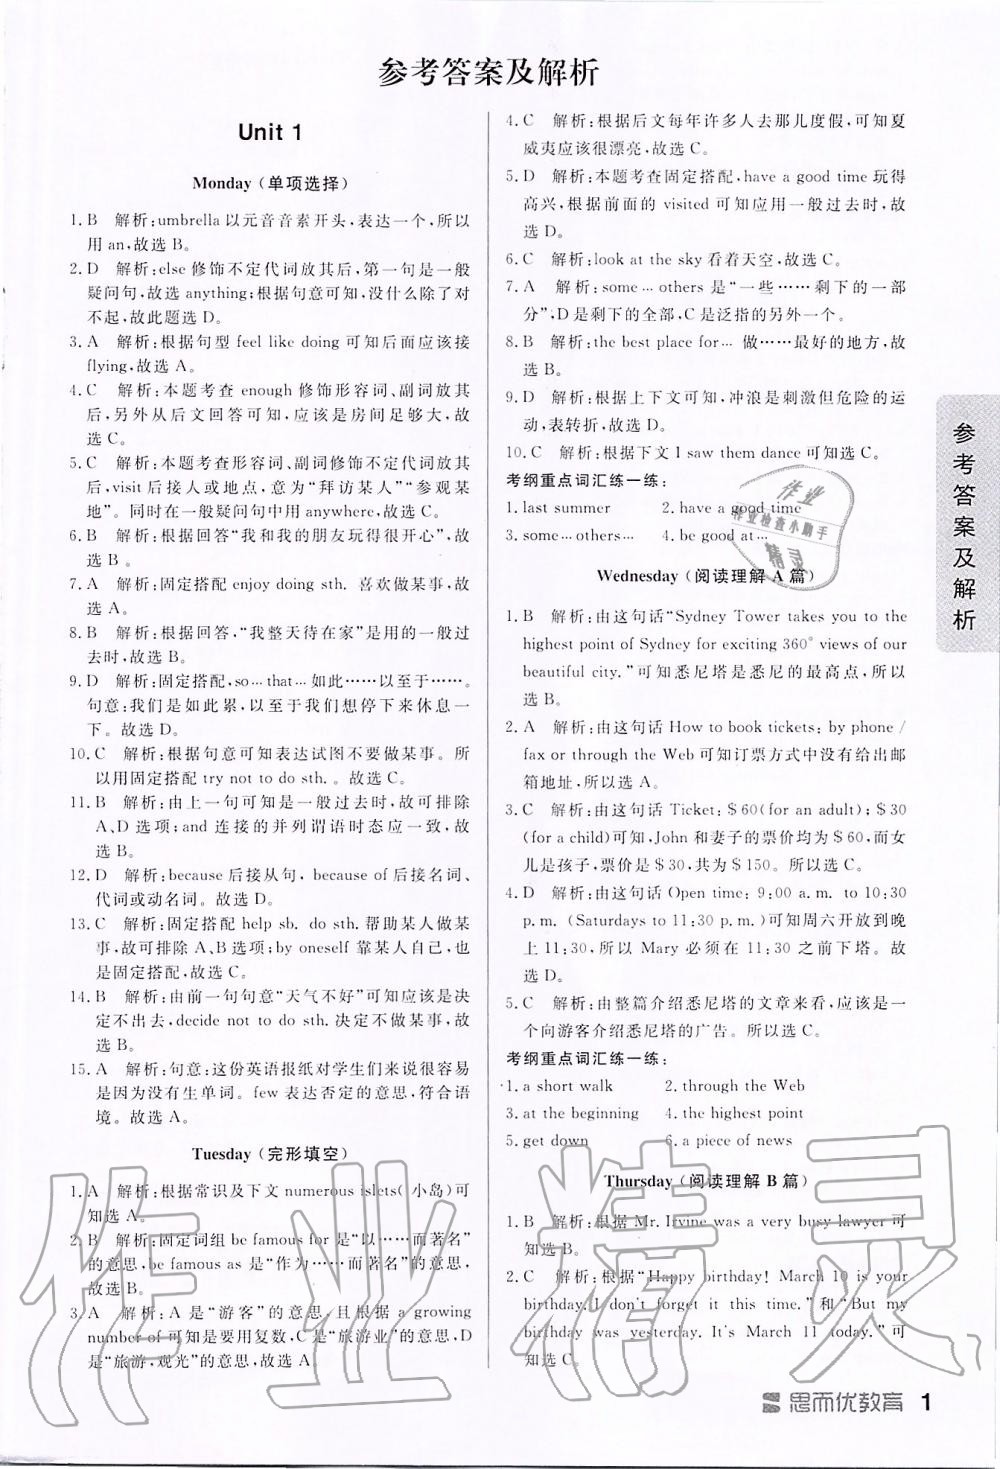 参考答案及解析
Unit 1
Monday(单项选择)
1. B 解析:umbrella 以元音音素开头,表达一个,所以
用 an,故选 B。
2. D 解析:else 修饰不定代词放其后,第一句是一般
疑问句,故选 anything;根据句意可知,没什么除了对
不起,故此题选 D。
3. A 解析:根据句型 feel like doing 可知后面应该接
flying,故选 A。
4. C 解析:本题考查 enough 修饰形容词、副词放其
后,另外从后文回答可知,应该是房间足够大,故
选 C。
5. C 解析:本题考查形容词、副词修饰不定代词放其
后,visit 后接人或地点,意为“拜访某人”“参观某
地”。同时在一般疑问句中用 anywhere,故选 C。
6. B 解析:根据回答“我和我的朋友玩得很开心”,故
选 B。
7. A 解析:固定搭配 enjoy doing sth. 喜欢做某事,故
选 A。
8. B 解析:根据回答,“我整天待在家”是用的一般过
去时,故选 B。
9. D 解析:固定搭配,so… that… 如此……以至于……。
句意:我们是如此累,以至于我们想停下来休息一
下。故选 D。
10. C 解析:根据句意可知表达试图不要做某事。所
以用固定搭配 try not to do sth. 。故选 C。
11. B 解析:由上一句可知是一般过去时,故可排除
A、D 选项;and 连接的并列谓语时态应一致,故
选 B。
12. D 解析:because 后接从句,because of 后接名词、
代词或动名词。故选 D。
13. C 解析:固定搭配 help sb. do sth. 帮助某人做某
事,故可排除 A、B 选项;by oneself 靠某人自己,也
是固定搭配,故选 C。
14. B 解析:由前一句句意“天气不好”可知应该是决
定不出去,decide not to do sth. 决定不做某事,故
选 B。
15. A 解析:句意:这份英语报纸对学生们来说很容易
是因为没有生单词。few 表达否定的意思,符合语
境。故选 A。
Tuesday(完形填空)
1. A 解析:根据常识及下文 numerous islets(小岛)可
知选 A。
2. B 解析:固定词组 be famous for 是“以……而著名”
的意思,be famous as 是“作为……而著名”的意思,
故选 B。
3. A 解析:A 是“游客”的意思,且根据 a growing
number of 可知是要用复数,C 是“旅游业”的意思,D
是“旅游,观光”的意思,故选 A。
4. C 解析:根据后文每年许多人去那儿度假,可知夏
威夷应该很漂亮,故选 C。
5. D 解析:本题考查固定搭配,have a good time 玩得
高兴,根据前面的 visited 可知应用一般过去时,故
选 D。
6. C 解析:look at the sky 看着天空,故选 C。
7. A 解析:some… others 是“一些……剩下的一部
分”,D 是剩下的全部,C 是泛指的另外一个。
8. B 解析:the best place for… 做……最好的地方,故
选 B。
9. D 解析:根据上下文可知,冲浪是刺激但危险的运
动,表转折,故选 D。
10. C 解析:根据下文 I saw them dance 可知选 C。
考纲重点词汇练一练:
1. last summer 2. have a good time
3. some… others… 4. be good at…
Wednesday(阅读理解 A 篇)
1. B 解析:由这句话“Sydney Tower takes you to the
highest point of Sydney for exciting 360° views of our
beautiful city.”可知悉尼塔是悉尼的最高点,所以
选 B。
2. A 解析:由这句话 How to book tickets: by phone /
fax or through the Web 可知订票方式中没有给出邮
箱地址,所以选 A。
3. C 解析:由这句话 Ticket: $60(for an adult); $30
(for a child)可知,John 和妻子的票价均为 $60,而女
儿是孩子,票价是 $30,共为 $150。所以选 C。
4. D 解析:由这句话 Open time: 9:00 a. m. to 10:30
p. m. (Saturdays to 11:30 p. m.)可知周六开放到晚
上 11:30,所以 Mary 必须在 11:30 之前下塔。故
选 D。
5. C 解析:由整篇介绍悉尼塔的文章来看,应该是一
个向游客介绍悉尼塔的广告。所以选 C。
考纲重点词汇练一练:
1. a short walk 2. through the Web
3. at the beginning 4. the highest point
5. get down 6. a piece of news
Thursday(阅读理解 B 篇)
1. B 解析:根据 Mr. Irvine was a very busy lawyer 可
知选 B。
2. C 解析:根据“Happy birthday! March 10 is your
birthday. I don't forget it this time.”和“But my
birthday was yesterday. It's March 11 today.”可
知选 C。
参考答案及解析
思而优教育 1
作业
作业检查小助手
精灵
作业精灵